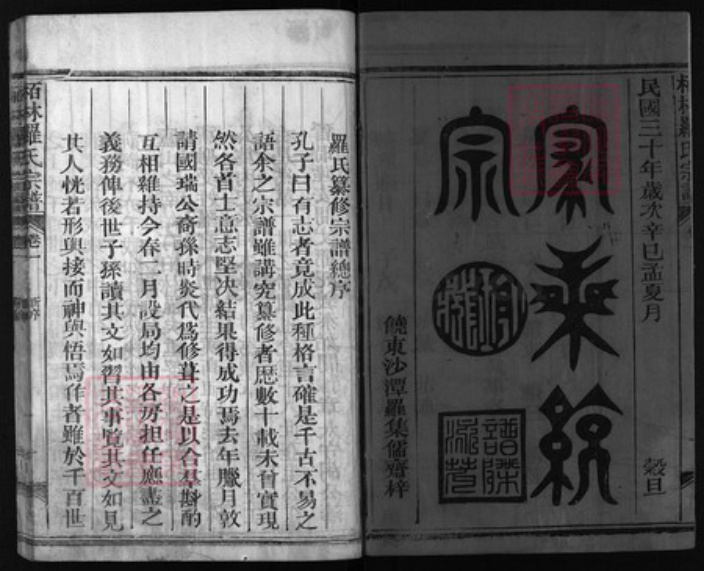 民國三十年歲次辛巳孟夏月 穀旦
家乘統宗
譜牒流芳
饒東沙潭羅集儒齋梓
羅氏纂修宗譜總序
孔子曰有志者竟成此種格言確是千古不易之
語余之宗譜雖講究纂修者歷數十載未曾實現
然各首士意志堅決結果得成功焉去年臘月敦
請國瑞公裔孫時炎代爲修葺之是以合羣斟酌
互相維持今春二月設局均由各房担任應盡之
義務俾後世子孫讀其文如習其事覽其文如見
其人恍若形與接而神與悟焉作者雖於千百世
栢林羅氏宗譜 卷一